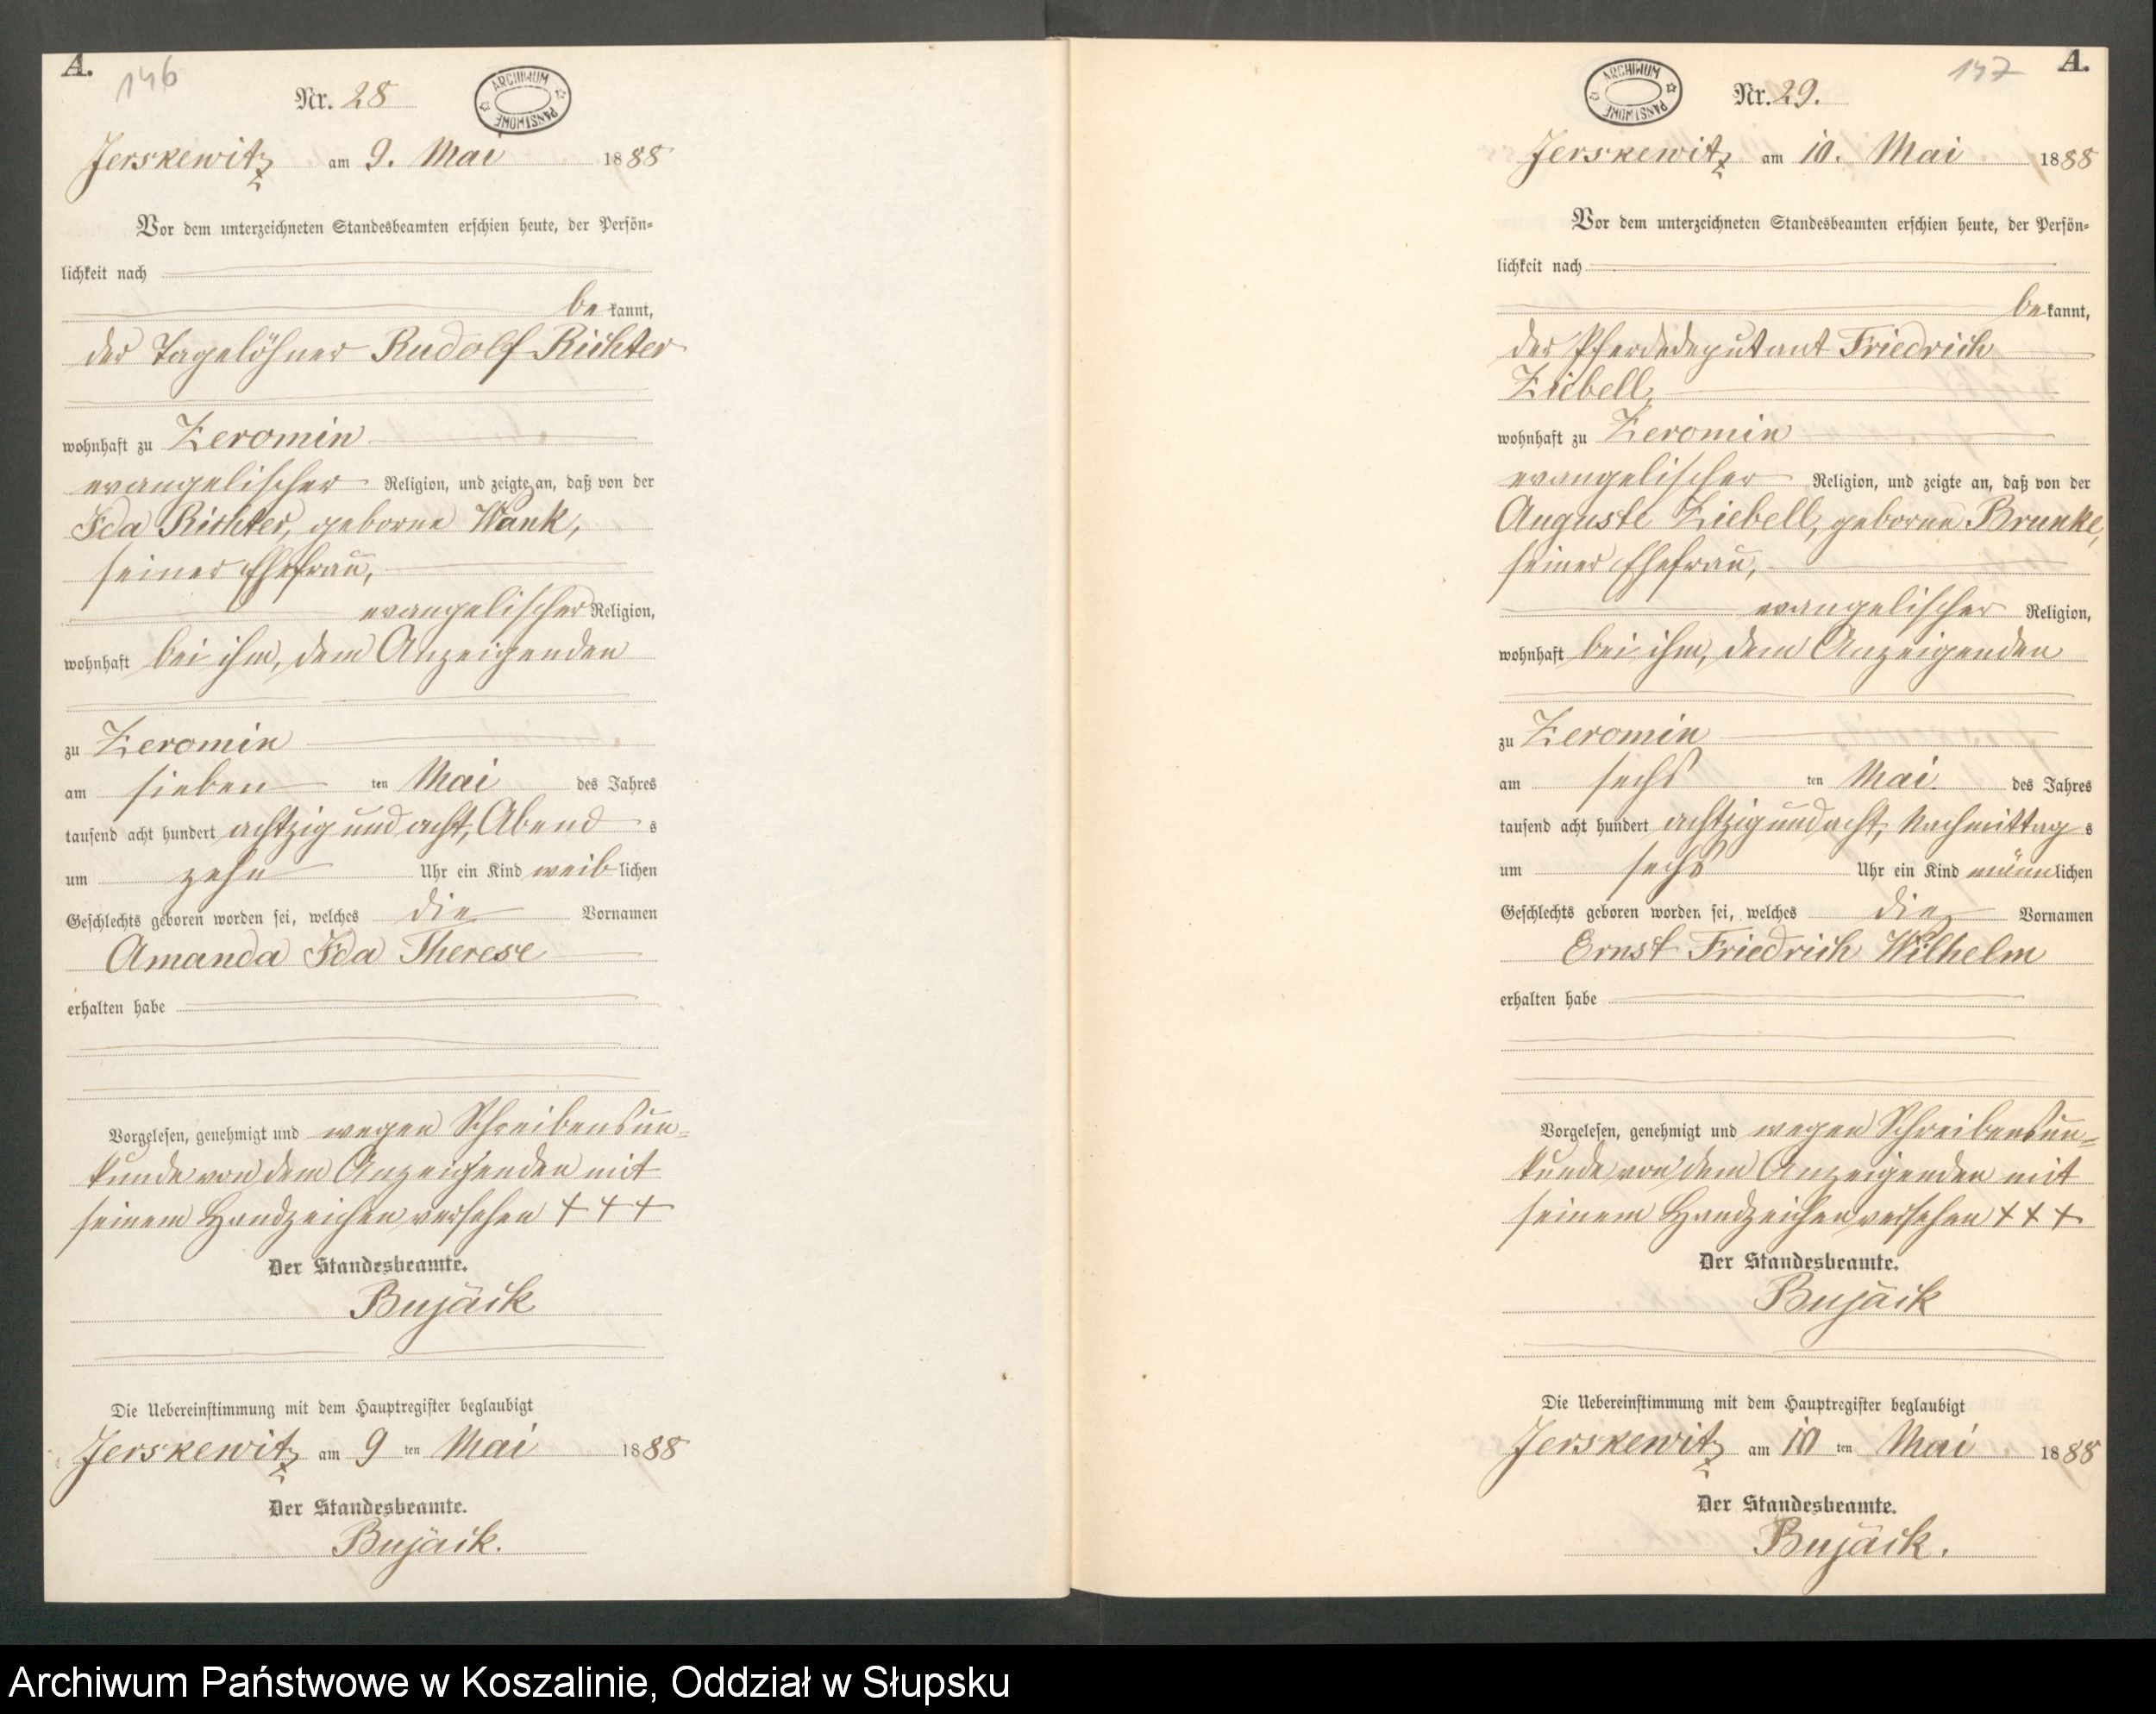 A.
146
Nr. 28
ARCHIWUM PAŃSTWOWE
Jerskewitz am 9. Mai 1888
Vor dem unterzeichneten Standesbeamten erschien heute, der Persön-
lichkeit nach
be kannt,
der Tagelöhner Rudolf Richter
wohnhaft zu Zeromin
evangelischer Religion, und zeigte an, daß von der
Ida Richter, geborne Wank,
seiner Ehefrau,
evangelischer Religion,
wohnhaft bei ihm, dem Anzeigenden
zu Zeromin
am sieben ten Mai des Jahres
tausend acht hundert achtzig und acht, Abend s
um zehn Uhr ein Kind weib lichen
Geschlechts geboren worden sei, welches die Vornamen
Amanda Ida Therese
erhalten habe
Vorgelesen, genehmigt und wegen Schreibensun-
kunde von dem Anzeigenden mit
seinem Handzeichen versehen + + +
Der Standesbeamte.
Bujäck
Die Uebereinstimmung mit dem Hauptregister beglaubigt
Jerskewitz am 9 ten Mai 1888
Der Standesbeamte.
Bujäck.
A.
147
Nr. 29.
ARCHIWUM PAŃSTWOWE
Jerskewitz am 10. Mai 1888
Vor dem unterzeichneten Standesbeamten erschien heute, der Persön-
lichkeit nach
be kannt,
der Pferdedeputant Friedrich
Ziebell,
wohnhaft zu Zeromin
evangelischer Religion, und zeigte an, daß von der
Auguste Ziebell, geborne Brunke,
seiner Ehefrau,
evangelischer Religion,
wohnhaft bei ihm, dem Anzeigenden
zu Zeromin
am sechs ten Mai. des Jahres
tausend acht hundert achtzig und acht, Nachmittag s
um sechs Uhr ein Kind männ lichen
Geschlechts geboren worden sei, welches die Vornamen
Ernst Friedrich Wilhelm
erhalten habe
Vorgelesen, genehmigt und wegen Schreibensun-
kunde von dem Anzeigenden mit
seinem Handzeichen versehen + + +
Der Standesbeamte.
Bujäck
Die Uebereinstimmung mit dem Hauptregister beglaubigt
Jerskewitz am 10 ten Mai 1888
Der Standesbeamte.
Bujäck.
Archiwum Państwowe w Koszalinie, Oddział w Słupsku